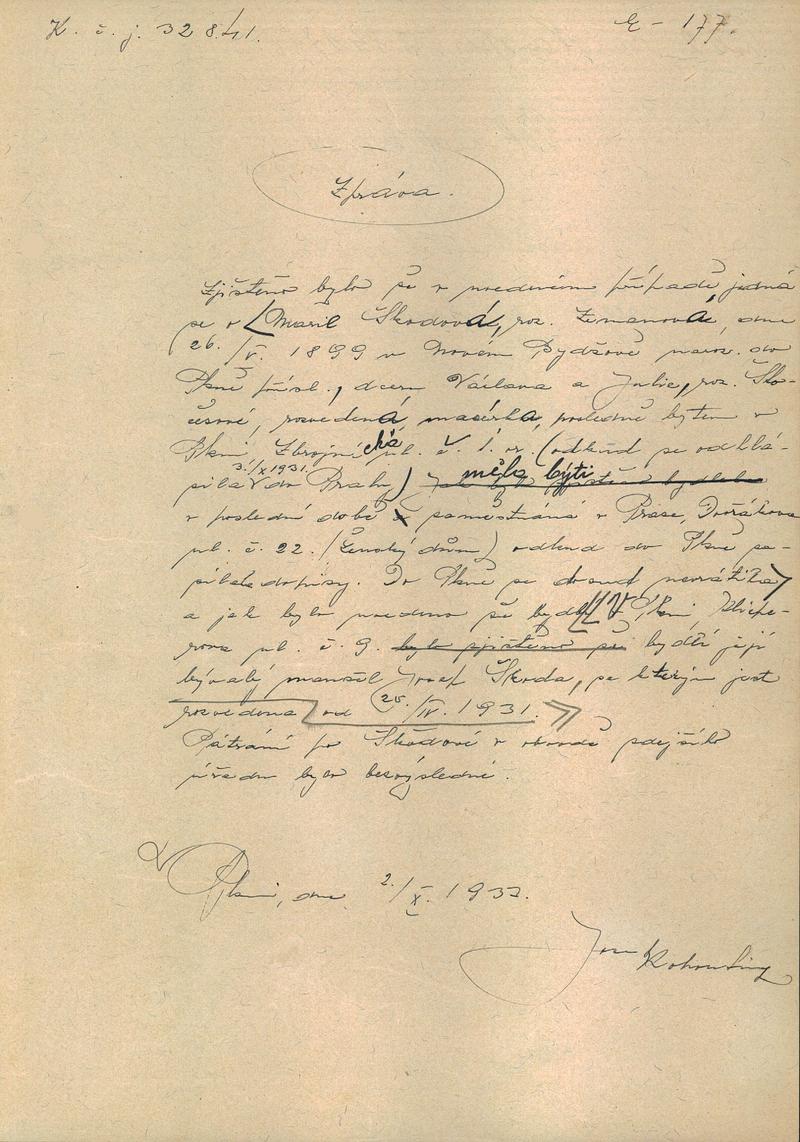 K. č. j. 3284/1.
E - 177.
Zpráva.
Zjištěno bylo že v uvedeném případě, jedná
se o Marii Škodovou, roz. Zemanovou, dne
26./V. 1899 v Novém Bydžově naroz. do
Plzně přísl., dcera Václava a Julie, roz. Sko-
česové, rozvedená, masérka, posledně bytem v
Plzni, Zbrojnická ul. č. 1. or. (odkud se odhlá-
sila 3./X 1931 do Prahy) měla býti
v poslední době zaměstnána v Praze, Dvořákova
ul. č. 22. (Ženský dům) odkud do Plzně za-
sílala dopisy. Do Plzně se dosud nevrátila
a jak bylo uvedeno že bydlí v Plzni, Klice-
rova ul. č. 9. bylo zjištěno že bydlí její
bývalý manžel Josef Škoda, se kterým jest
rozvedena od 25./IV. 1931.
Pátrání po Škodové v obvodě zdejšího
úřadu bylo bezvýsledné.
Plzni, dne 2./X. 1933.